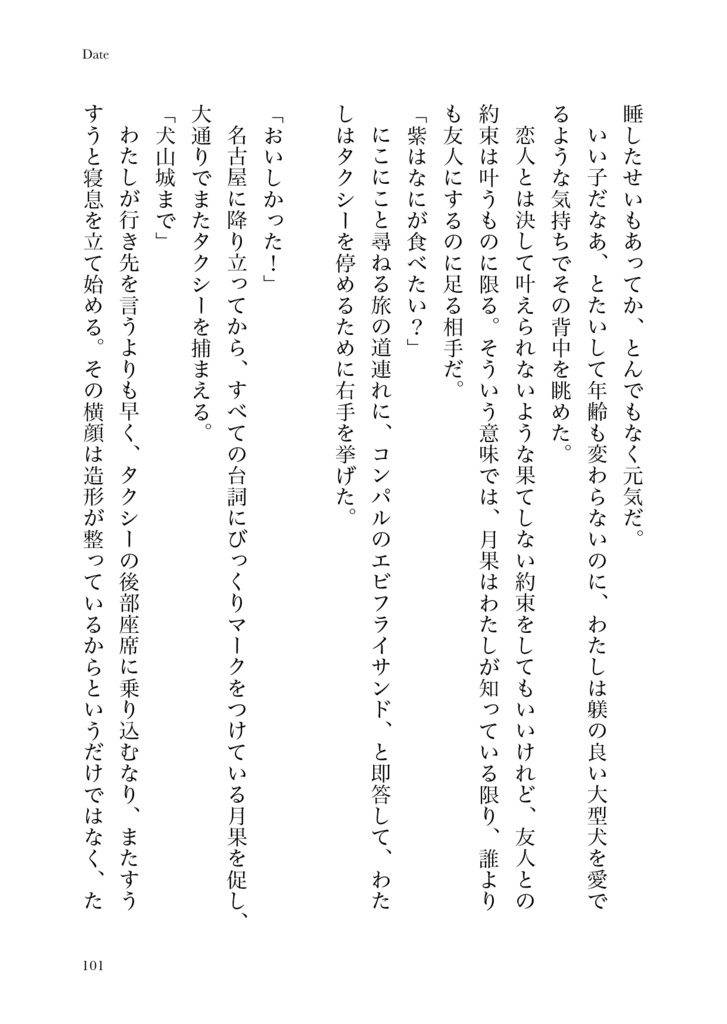 Date
睡したせいもあってか、とんでもなく元気だ。
いい子だなあ、とたいして年齢も変わらないのに、わたしは躾の良い大型犬を愛で
るような気持ちでその背中を眺めた。
恋人とは決して叶えられないような果てしない約束をしてもいいけれど、友人との
約束は叶うものに限る。そういう意味では、月果はわたしが知っている限り、誰より
も友人にするのに足る相手だ。
「紫はなにが食べたい？」
にこにこと尋ねる旅の道連れに、コンパルのエビフライサンド、と即答して、わた
しはタクシーを停めるために右手を挙げた。
「おいしかった！」
名古屋に降り立ってから、すべての台詞にびっくりマークをつけている月果を促し、
大通りでまたタクシーを捕まえる。
「犬山城まで」
わたしが行き先を言うよりも早く、タクシーの後部座席に乗り込むなり、またすう
すうと寝息を立て始める。その横顔は造形が整っているからというだけではなく、た
101